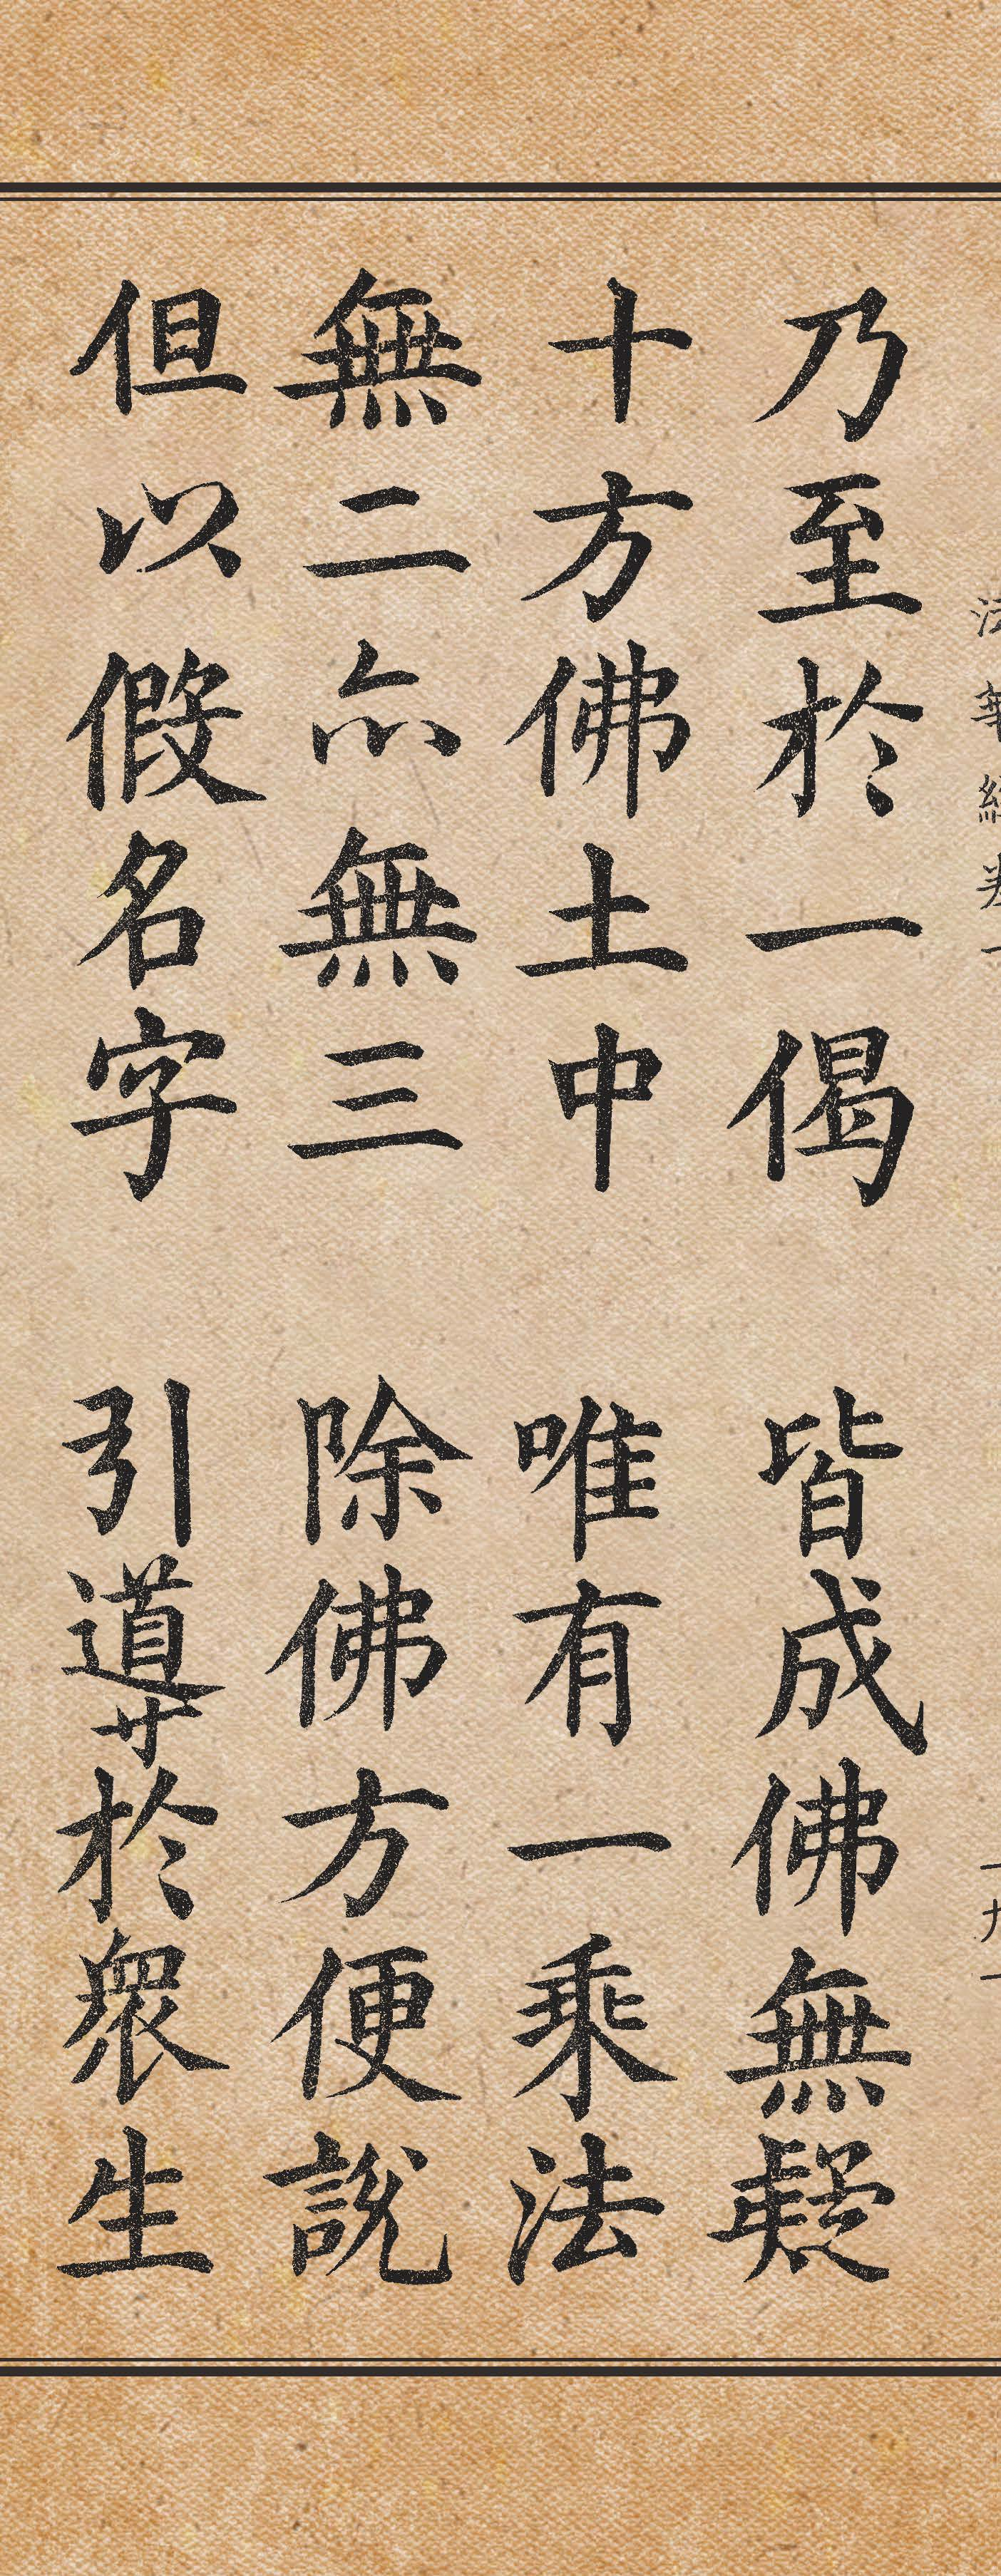 法華經卷一
乃至於一偈 皆成佛無疑
十方佛土中 唯有一乘法
無二亦無三 除佛方便說
但以假名字 引導於衆生